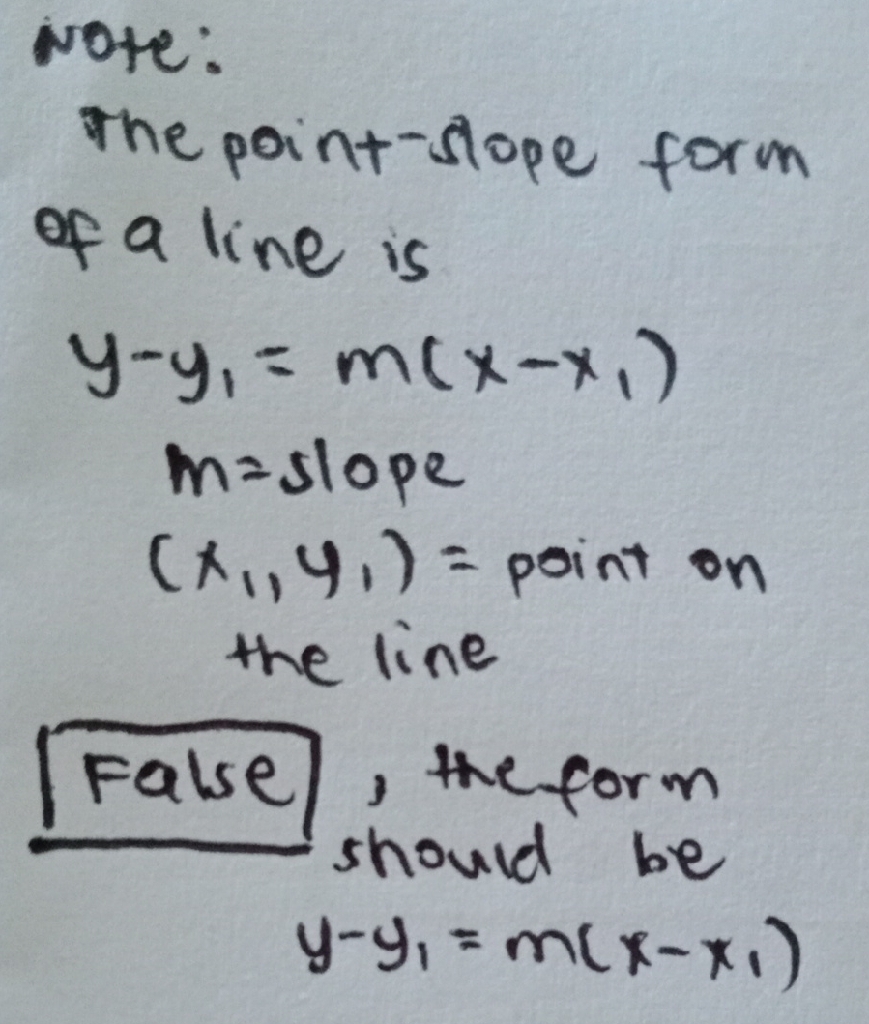 Note:
The point-slope form
of a line is
y-y₁ = m(x-x₁)
m=slope
(x₁, y₁) = point on
the line
False, the form
should be
y-y₁ = m(x-x₁)